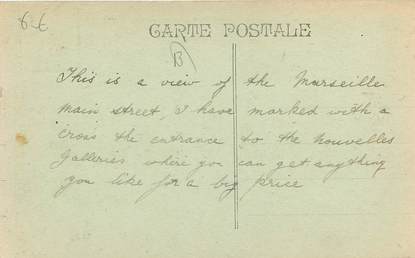 6 €
CARTE POSTALE
B
This is a view of the Marseille
main street, I have marked with a
crois the entrance to the Nouvelles
Galleries where you can get anything
you like for a big price